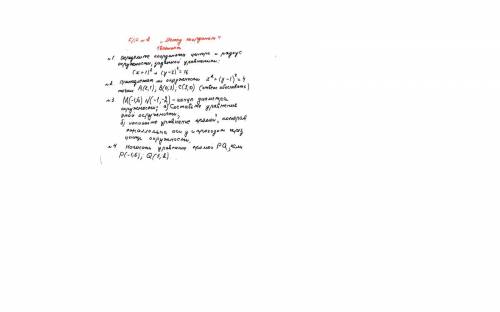 С/р № 2 „Метод координат"
I вариант
№1 Определите координаты центра и радиус
окружности, заданной уравнением:
(x+1)² + (y-2)² = 16
№2 Принадлежат ли окружности x² + (y-1)² = 4
точки A(2;1), B(0;3), C(3;0) (ответ обосновать)
№3 M(-1;6) N(-1;-2) - концы диаметра
окружности; а) Составьте уравнение
этой окружности;
б) напишите уравнение прямой, которая
оси y и проходит через
центр окружности.
№4 Написать уравнение прямой PQ, если
P(-1;6), Q(1;2).